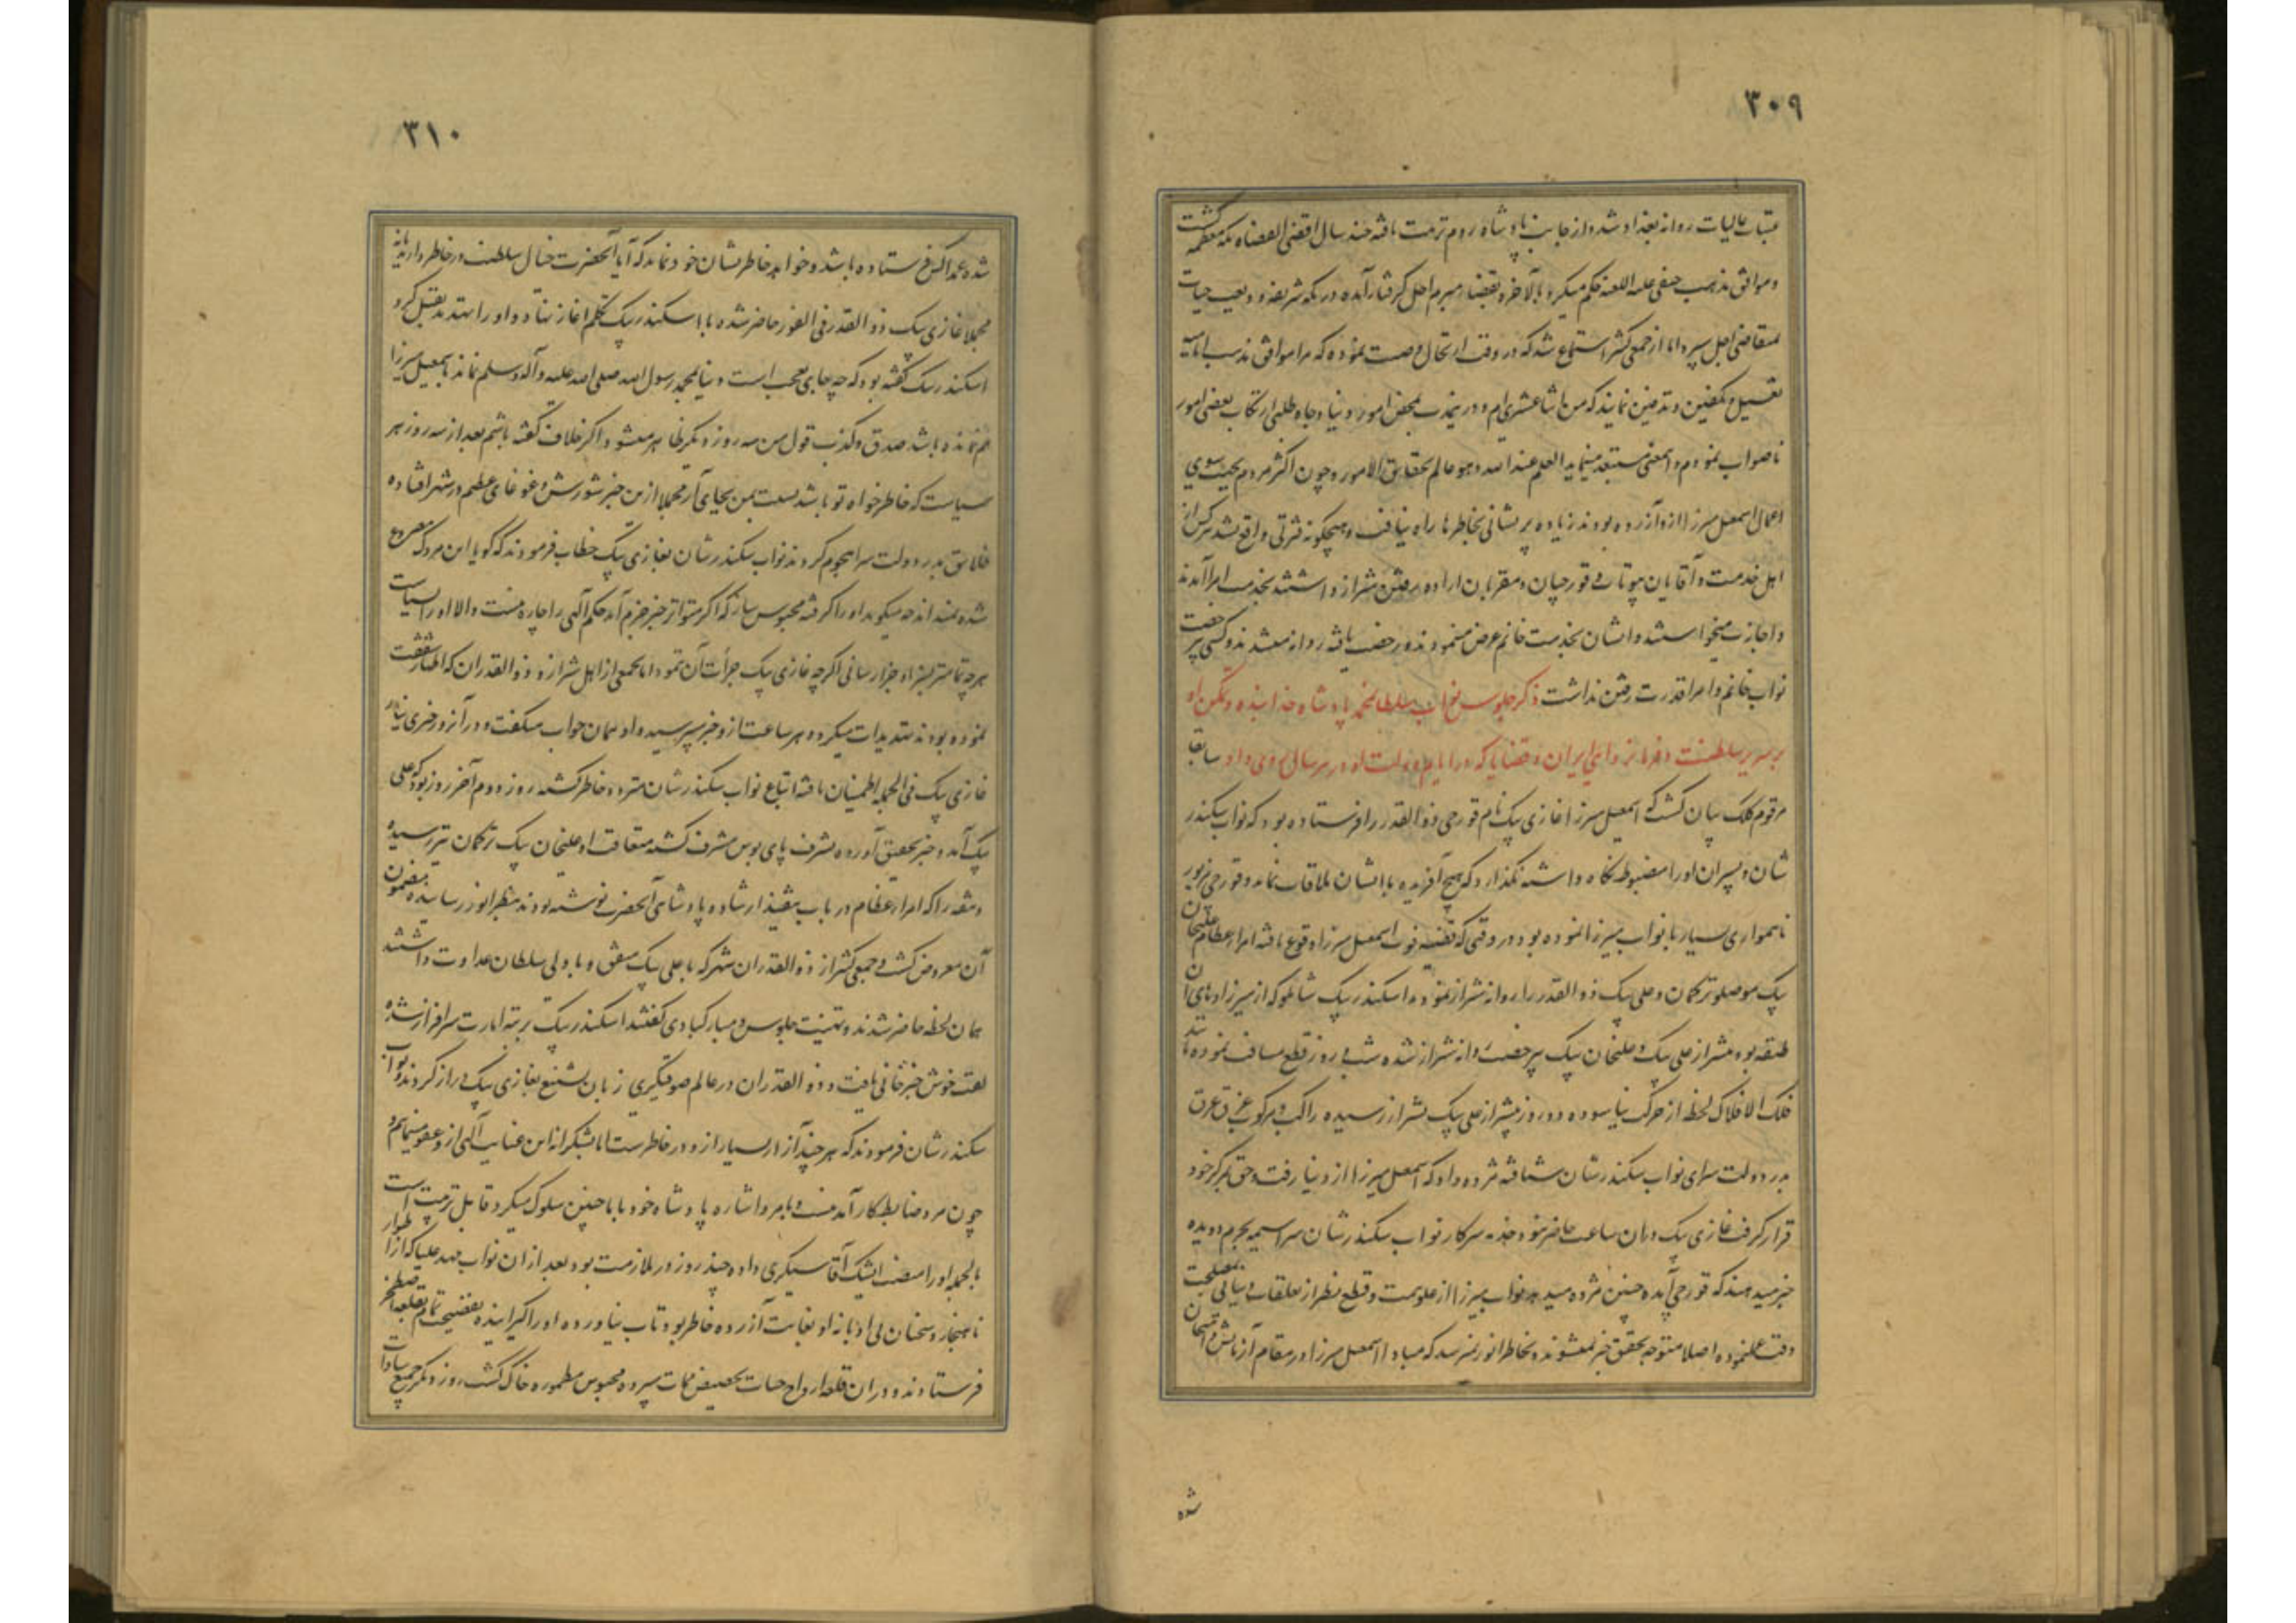 ۳۰۹
عتبات عالیات روانه بغداد شد و از جانب پادشاه روم تربیت یافته چند سال اقضی القضاة مکه معظمه گشت
و موافق مذهب حنفی علیه اللعنه حکم میکرد بالاخره بقضاء مبرم اجل گرفتار آمده در مکه شریفه ودیعت حیات
بمتقاضی اجل سپرد اما از جمعی کثیر استماع شد که در وقت ارتحال وصیت نموده که مرا موافق مذهب امامیه
تغسیل و تکفین و تدفین نمایند که من اثنا عشری ام و درین مذهب بمحض امور دنیا و جاه طلبی ارتکاب بعضی امور
ناصواب نمودم و این معنی مستبعد مینماید العلم عند الله و هو عالم بحقایق الامور و چون اکثر مردم بجهت سوی
اعمال اسمعیل میرزا ازو آزرده بودند زیاده پریشانی بخاطرها راه نیافت و هیچگونه فترتی واقع نشد هر کس از
اهل خدمت و آقایان بیوتات و قورچیان و مقربان اراده رفتن شیراز داشتند بخدمت امرا آمدند
و اجازت میخواستند و ایشان بخدمت خانم عرض مینمودند و رخصت یافته روانه میشدند و کسی بی رخصت
نواب خانم و امرا قدرت رفتن نداشت ذکر جلوس نواب سلطان محمد پادشاه خدابنده و تمکن او
بر سریر سلطنت و فرمانروائی ایران و قضایا که در ایام دولت او در هر سال روی داد سابقا
مرقوم کلک بیان گشت که اسمعیل میرزا غازی بیک نام قورچی ذوالقدر را فرستاده بود که نواب سکندر
شان و پسران او را مضبوط نگاه داشته نگذارد که هیچ آفریده با ایشان ملاقات نماید و قورچی مزبور
ناهمواری بسیار با نواب میرزا نموده بود در وقتی که قضیه فوت اسمعیل میرزا وقوع یافته امراء عظام علیخان
بیک موصلو ترکمان و علی بیک ذوالقدر را روانه شیراز نمودند اسکندر بیک شاملو که از میرزاده‌های آن
طبقه بود پیشتر از علی بیک و علیخان بیک بی رخصت روانه شیراز شده شب و روز قطع مسافت نموده مانند
فلک الافلاک لحظه از حرکت نیاسوده دو روز پیشتر از علی بیک بشیراز رسیده راکب و مرکوب غریق عرق
بدر دولت سرای نواب سکندر شان شتافته مژده داد که اسمعیل میرزا از دنیا رفت و حق بمرکز خود
قرار گرفت غازی بیک در آن ساعت حاضر نبود خدمه سرکار نواب سکندر شان سراسیمه بحرم دویده
خبر میدهند که قورچی آمده چنین مژده میدهد نواب میرزا از علو همت و قطع نظر از تعلقات و بیانی بمصلحت
وقت عمل نموده اصلا متوجه تحقیق خبر نمیشوند و بخاطر انور میرسد که مبادا اسمعیل میرزا در مقام آزمایش و امتحان
شده
۳۱۰
شده عمدا کس فرستاده باشد و خواهد خاطر نشان خود نماید که آیا آنحضرت خیال سلطنت در خاطر دارند یا نه
مجملا غازی بیک ذوالقدر فی الفور حاضر شده با اسکندر بیک تکلم آغاز نهاد و او را تهدید بقتل کرد
اسکندر بیک گفته بود که چه جای تعجب است دنیا بمحمد رسول الله صلی الله علیه و آله وسلم نماند باسمعیل میرزا
هم نمانده باشد صدق و کذب قول من سه روز دیگر ظاهر میشود اگر خلاف گفته باشم بعد از سه روز هر
سیاست که خاطر خواه تو باشد نسبت بمن بجای آر مجملا ازین خبر شورش و غوغای عظیم در شهر افتاده
خلایق بدر دولت سرا هجوم کردند نواب سکندر شان بغازی بیک خطاب فرمودند که گویا این مردک مصروع
شده نمیداند چه میگوید او را گرفته محبوس ساز که اگر متواتر خبر جزم آمد حکم الهی را چاره نیست والا او را بسیاست
هر چه تمامتر بسزا و جزا رسانی اگرچه غازی بیک جرأت آن ننمود اما بجمعی از اهل شیراز و ذوالقدران که اظهار شعف
نموده بودند تهدیدات میکرد و هر ساعت ازو خبر میپرسید و او همان جواب میگفت و در آن روز خبری نیامد
غازی بیک فی الجمله اطمینان یافته اتباع نواب سکندر شان متردد خاطر گشته روز دوم آخر روز بود که علی
بیک آمد و خبر تحقیق آورده بشرف پای بوس مشرف گشته متعاقب او علیخان بیک ترکمان نیز رسیده
وثیقه را که امراء عظام در باب تنفیذ ارشاد و پادشاهی آنحضرت نوشته بودند بنظر انور رسانیده مضمون
آن معروض گشت و جمعی کثیر از ذوالقدران شهر که با علی بیک متفق و با ولی سلطان عداوت داشتند
همان لحظه حاضر شدند و تهنیت جلوس و مبارکبادی گفتند اسکندر بیک برتبه امارت سرافراز شده
لقب خوش خبر خانی یافت و ذوالقدران در عالم صوفیگری زبان تشنیع بغازی بیک دراز کردند نواب
سکندر شان فرمودند که هر چند آزار بسیار ازو در خاطر ست اما بشکرانه این عنایت الهی ازو عفو مینمایم و
چون مرد ضابط کار آمد نیست و بامر و اشاره پادشاه خود با ما چنین سلوک میکرد قابل تربیت است
بالجمله او را منصب ایشیک آقاسیگری داده چند روز در ملازمت بود بعد از آن نواب مهد علیا که از اطوار
ناهنجار و سخنان بی ادبانه او بغایت آزرده خاطر بود تاب نیاورده او را گیرانیده بفضیحت تمام بقلعه اصطخر
فرستادند و در آن قلعه ارواح حیات بحضیض ممات سپرده محبوس مطموره خاک گشت روز دیگر جمیع سادات